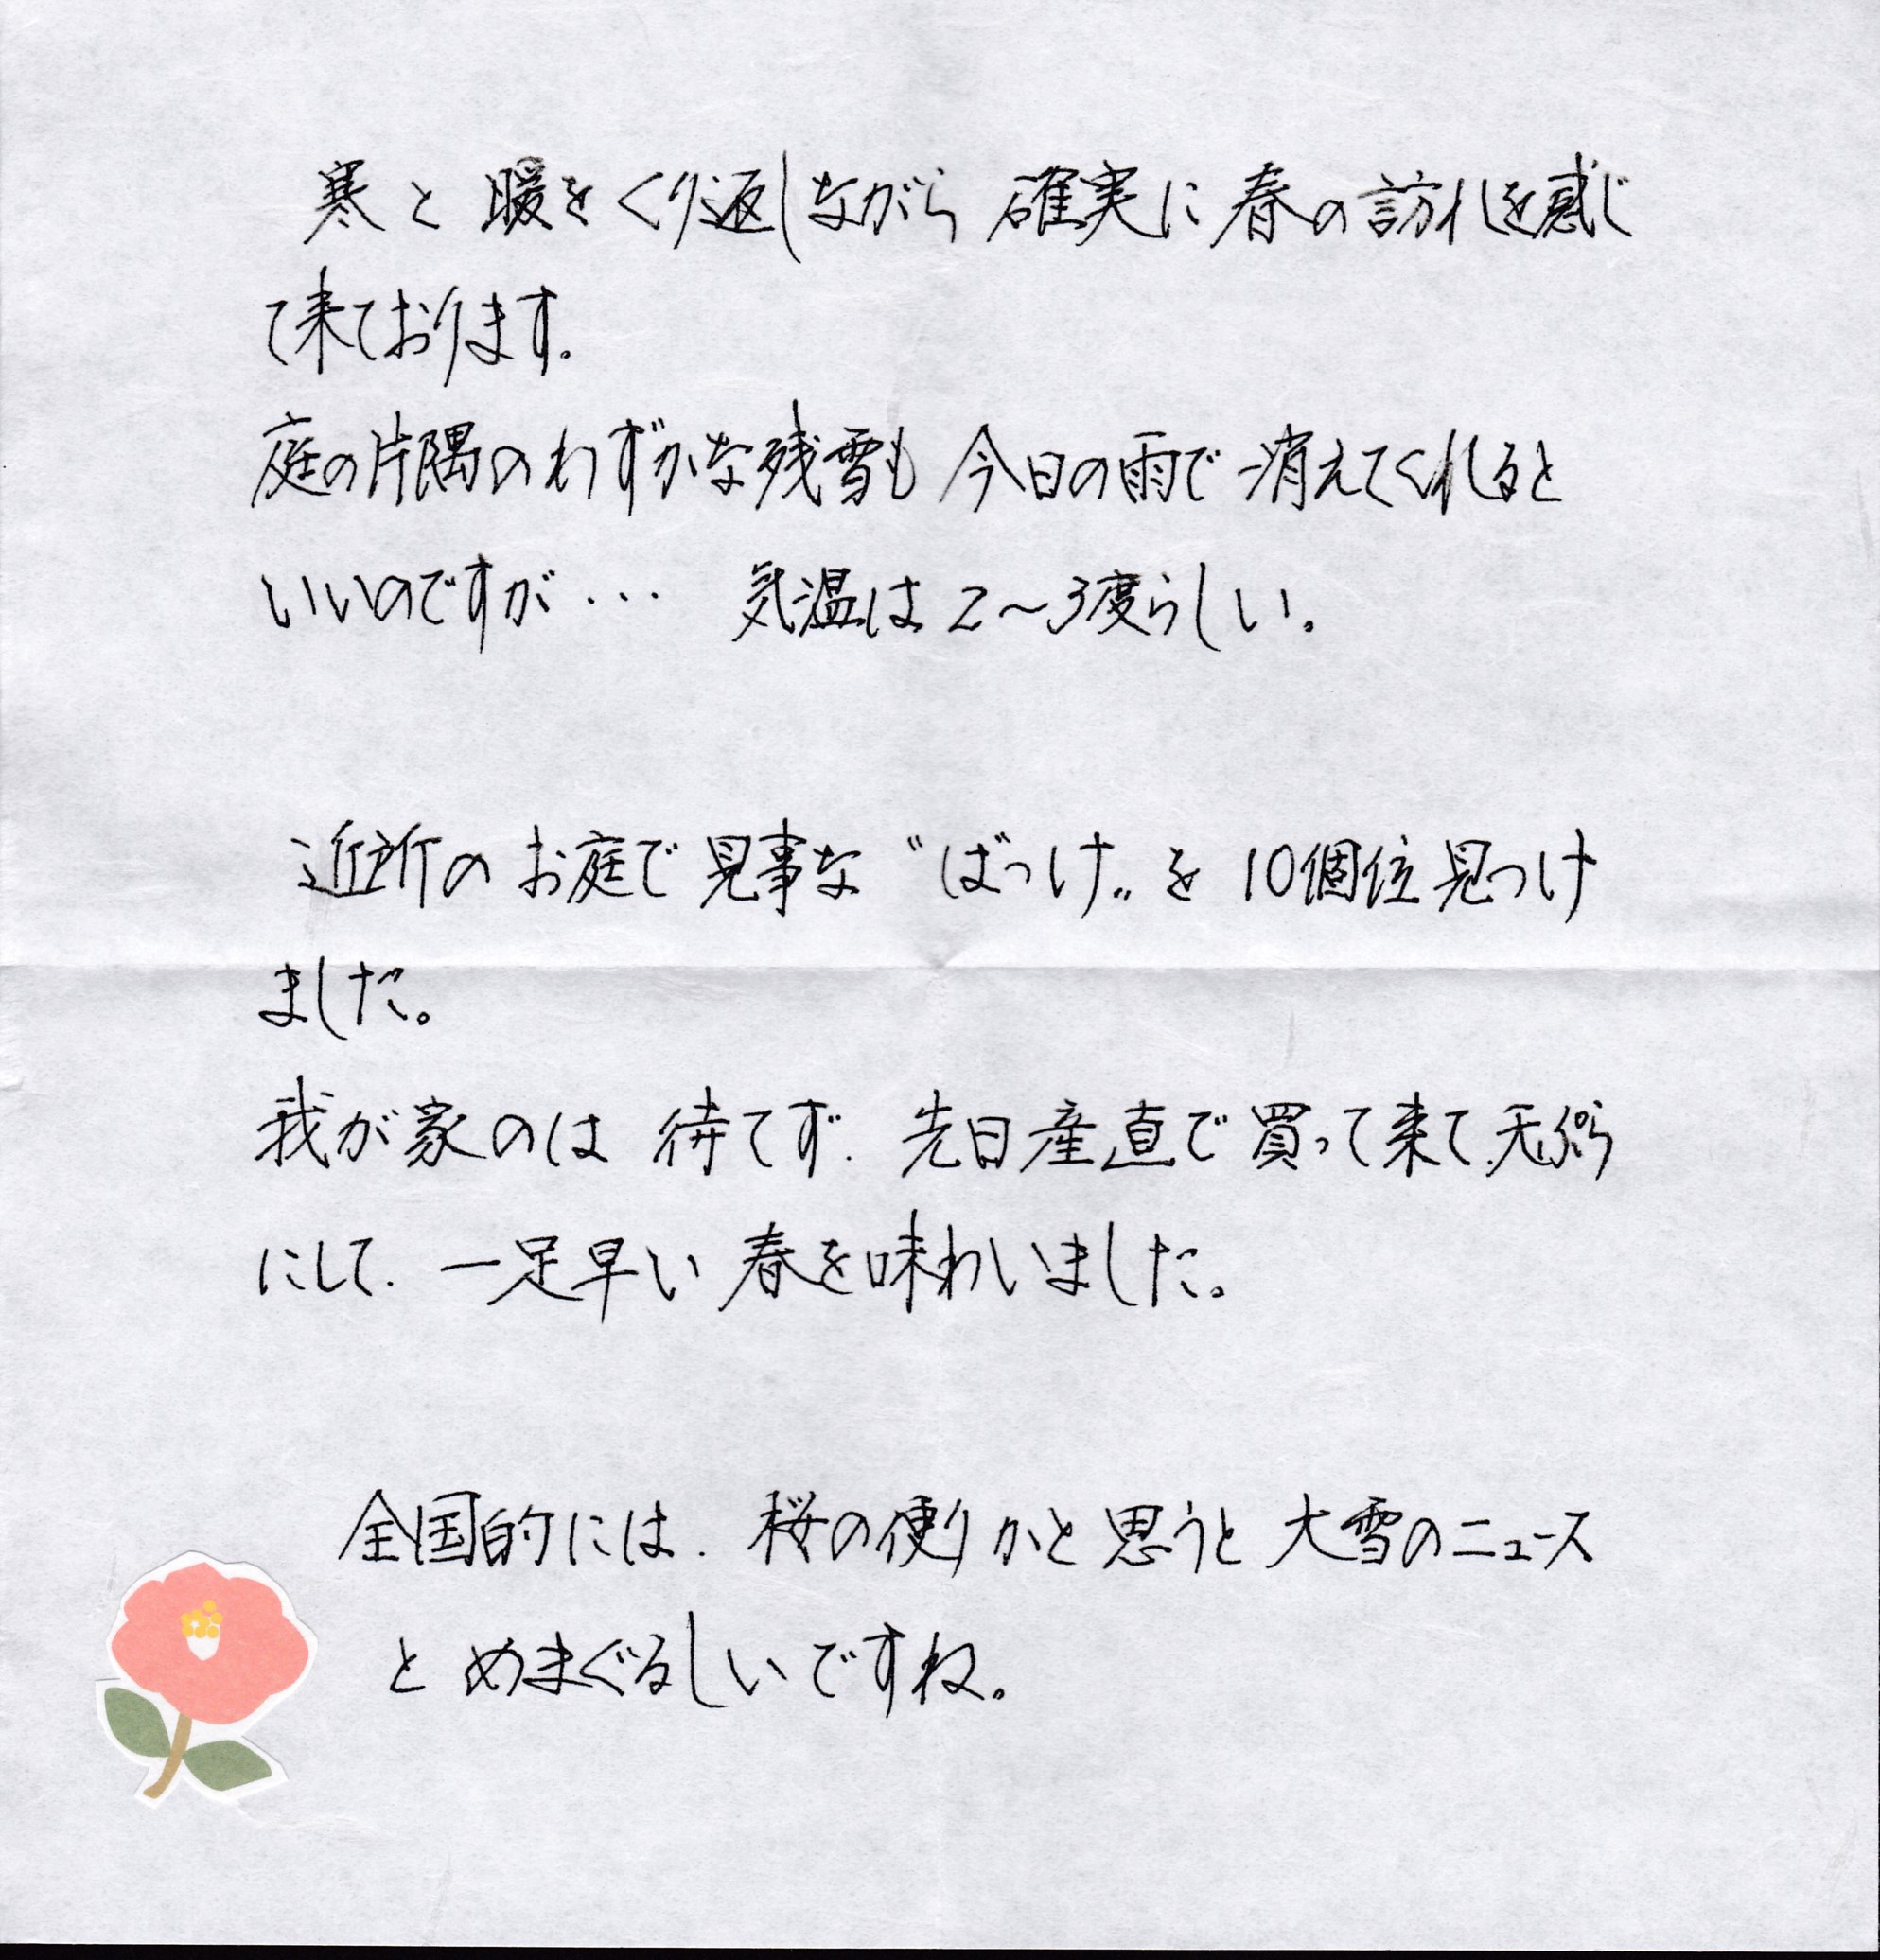 寒と暖をくり返しながら 確実に春の訪れを感じ
て来ております。
庭の片隅のわずかな残雪も 今日の雨で消えてくれると
いいのですが・・・ 気温は2〜3度らしい。
近所のお庭で見事な〝ばっけ〟を10個位見つけ
ました。
我が家のは 待てず、先日産直で買って来て、天ぷら
にして、一足早い春を味わいました。
全国的には、桜の便りかと思うと大雪のニュース
と めまぐるしいですね。